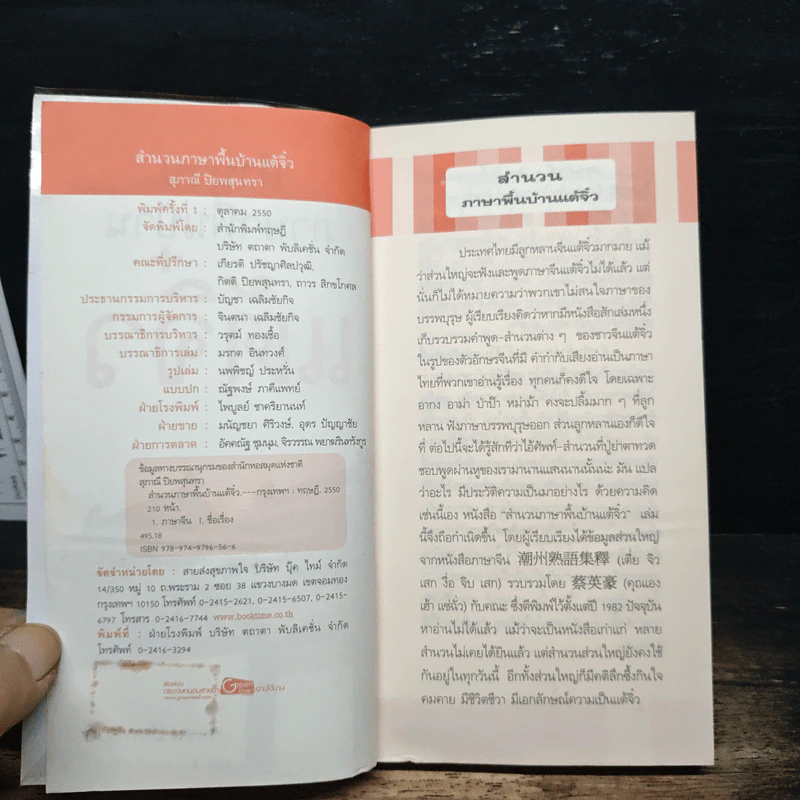 สำนวนภาษาพื้นบ้านแต้จิ๋ว
สุภาณี ปิยพสุนทรา
พิมพ์ครั้งที่ 1 : ตุลาคม 2550
จัดพิมพ์โดย : สำนักพิมพ์ทฤษฎี
บริษัท ตถาตา พับลิเคชั่น จำกัด
คณะที่ปรึกษา : เกียรติ ปรัชญาศิลปวุฒิ,
กิตติ ปิยพสุนทรา, ถาวร สิกขโกศล
ประธานกรรมการบริหาร : บัญชา เฉลิมชัยกิจ
กรรมการผู้จัดการ : จินตนา เฉลิมชัยกิจ
บรรณาธิการบริหาร : วรุตม์ ทองเชื้อ
บรรณาธิการเล่ม : มรกต อินทวงศ์
รูปเล่ม : นพพิชญ์ ประหวั่น
แบบปก : ณัฐพงษ์ ภาคีแพทย์
ฝ่ายโรงพิมพ์ : ไพบูลย์ ชาคริยานนท์
ฝ่ายขาย : มนัญชยา ศิริวงษ์, อุดร ปัญญาชัย
ฝ่ายการตลาด : อัคคณัฐ ชุมนุม, จิรวรรณ พยาฆรินทรังกูร
ข้อมูลทางบรรณานุกรมของสำนักหอสมุดแห่งชาติ
สุภาณี ปิยพสุนทรา
สำนวนภาษาพื้นบ้านแต้จิ๋ว.---กรุงเทพฯ : ทฤษฎี, 2550
210 หน้า.
1. ภาษาจีน I. ชื่อเรื่อง
495.18
ISBN 978-974-9796-56-6
จัดจำหน่ายโดย : สายส่งสุขภาพใจ บริษัท บุ๊ค ไทม์ จำกัด
14/350 หมู่ 10 ถ.พระราม 2 ซอย 38 แขวงบางมด เขตจอมทอง
กรุงเทพฯ 10150 โทรศัพท์ 0-2415-2621, 0-2415-6507, 0-2415-
6797 โทรสาร 0-2416-7744 www.booktime.co.th
พิมพ์ที่ : ฝ่ายโรงพิมพ์ บริษัท ตถาตา พับลิเคชั่น จำกัด
โทรศัพท์ 0-2416-3294
สำนวน
ภาษาพื้นบ้านแต้จิ๋ว
ประเทศไทยมีลูกหลานจีนแต้จิ๋วมากมาย แม้
ว่าส่วนใหญ่จะฟังและพูดภาษาจีนแต้จิ๋วไม่ได้แล้ว แต่
นั่นก็ไม่ได้หมายความว่าพวกเขาไม่สนใจภาษาของ
บรรพบุรุษ ผู้เรียบเรียงคิดว่าหากมีหนังสือสักเล่มหนึ่ง
เก็บรวบรวมคำพูด-สำนวนต่าง ๆ ของชาวจีนแต้จิ๋ว
ในรูปของตัวอักษรจีนที่มี คำกำกับเสียงอ่านเป็นภาษา
ไทยที่พวกเขาอ่านรู้เรื่อง ทุกคนก็คงดีใจ โดยเฉพาะ
อากง อาม่า ป่าป๊า หม่าม้า คงจะปลื้มมาก ๆ ที่ลูก
หลาน ฟังภาษาบรรพบุรุษออก ส่วนลูกหลานเองก็ดีใจ
ที่ ต่อไปนี้จะได้รู้สักทีว่าไอ้ศัพท์-สำนวนที่ปู่ย่าตาทวด
ชอบพูดผ่านหูของเรามานานแสนนานนั้นน่ะ มัน แปล
ว่าอะไร มีประวัติความเป็นมาอย่างไร ด้วยความคิด
เช่นนี้เอง หนังสือ "สำนวนภาษาพื้นบ้านแต้จิ๋ว" เล่ม
นี้จึงถือกำเนิดขึ้น โดยผู้เรียบเรียงได้ข้อมูลส่วนใหญ่
จากหนังสือภาษาจีน 潮州熟語集釋 (เตี่ย จิว
เสก งื่อ จิบ เสก) รวบรวมโดย 蔡英豪 (คุณแอง
เฮ้า แซ่ฉั่ว) กับคณะ ซึ่งตีพิมพ์ไว้ตั้งแต่ปี 1982 ปัจจุบัน
หาอ่านไม่ได้แล้ว แม้ว่าจะเป็นหนังสือเก่าแก่ หลาย
สำนวนไม่เคยได้ยินแล้ว แต่สำนวนส่วนใหญ่ยังคงใช้
กันอยู่ในทุกวันนี้ อีกทั้งส่วนใหญ่ก็มีคติลึกซึ้งกินใจ
คมคาย มีชีวิตชีวา มีเอกลักษณ์ความเป็นแต้จิ๋ว